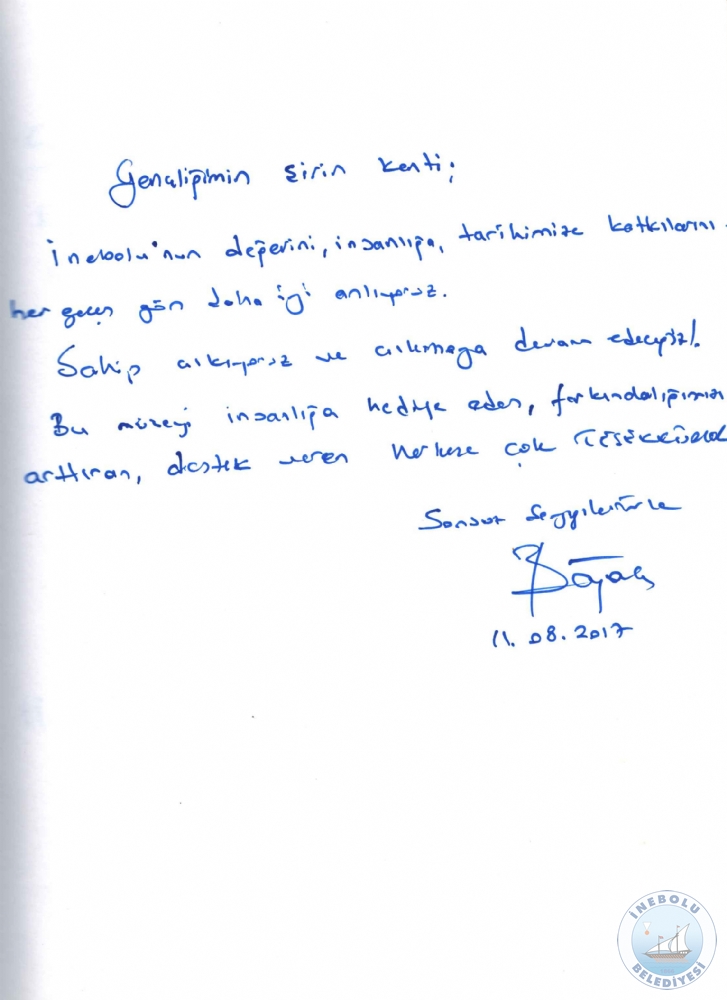 Gençliğimin şirin kenti;
İnebolu'nun değerini, insanlığa, tarihimize katkılarını
her geçen gün daha iyi anlıyoruz.
Sahip çıkıyoruz ve çıkmağa devam edeceğiz!.
Bu müzeyi insanlığa hediye eden, farkındalığımızı
arttıran, destek veren herkese çok TEŞEKKÜRLER
Sonsuz Sevgilerimle
11.08.2017
İNEBOLU
BELEDİYESİ